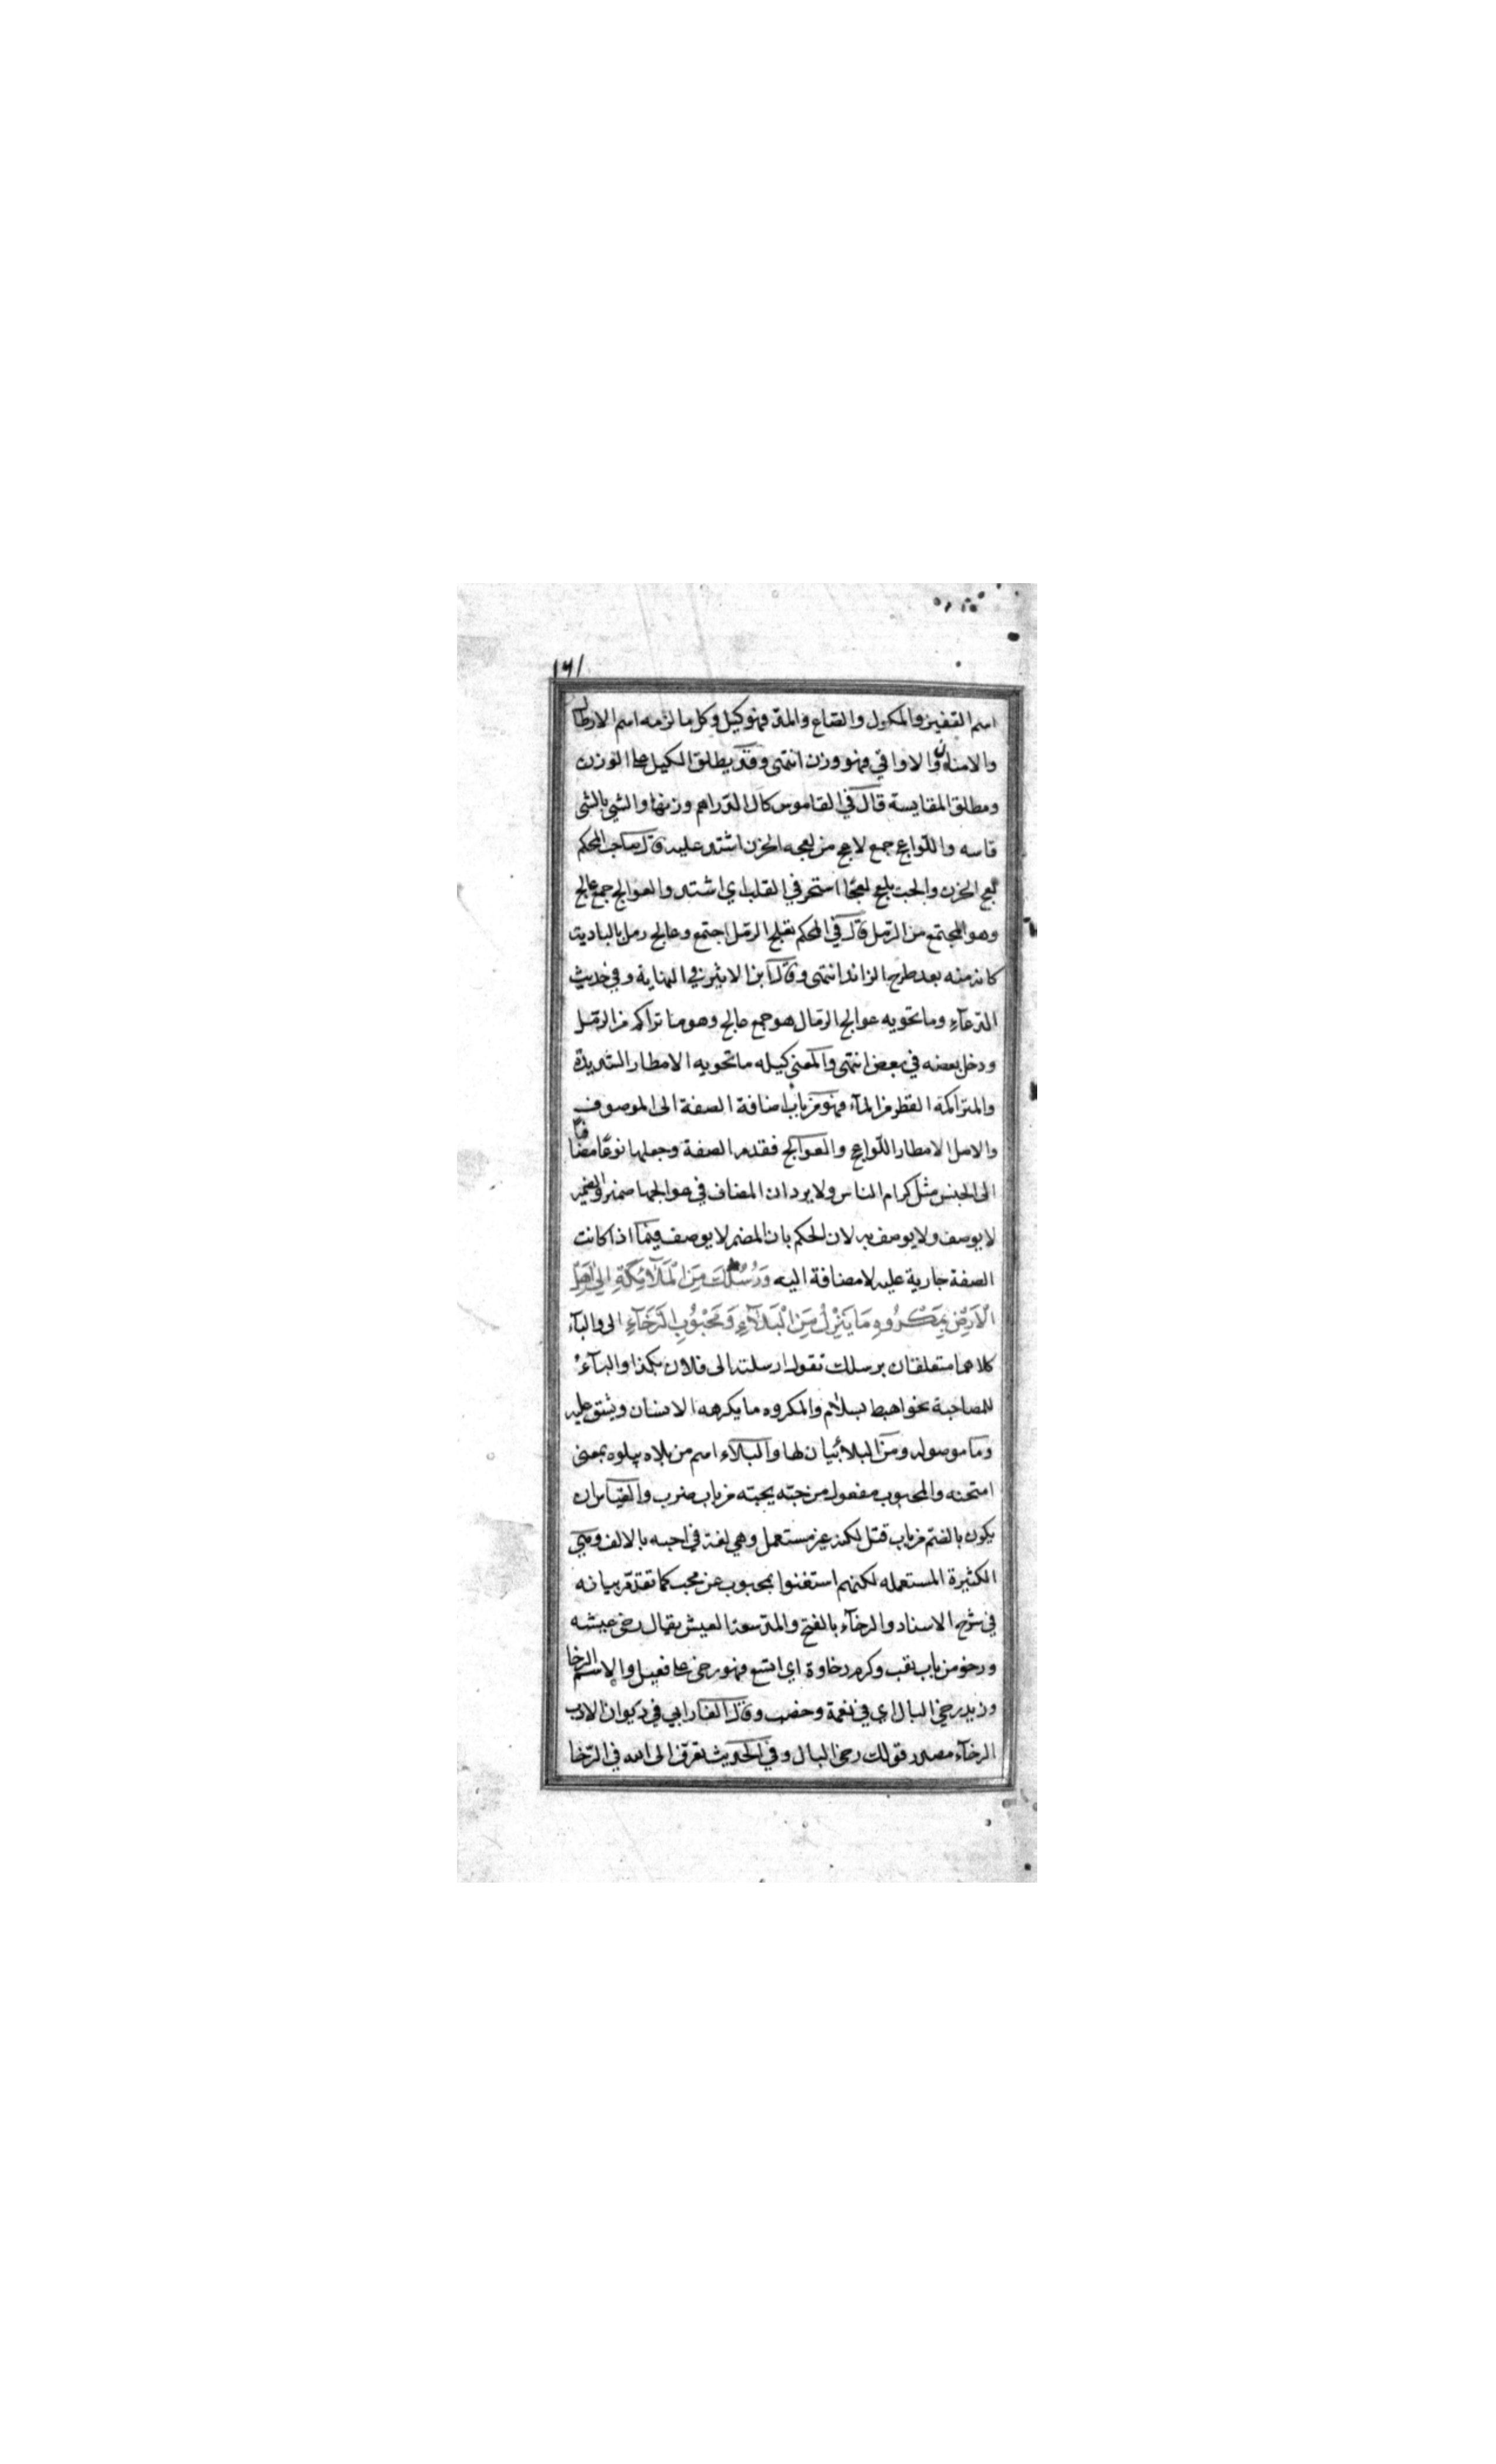 ١٦١
اسم القفيز والمكول والصاع والمد فهو كيل وكل ما لزمه اسم الارطال
والامنان والاواقي فهو وزن انتهى وقد يطلق الكيل على الوزن
ومطلق المقايسة قال في القاموس كال الدراهم وزنها والشي بالشي
قاسه واللواعج جمع لاعج من لعجه الحزن اشتد عليه قال صاحب المحكم
لعج الحزن والحب يلعج لعجًا استحر في القلب اي اشتد والعوالج جمع عالج
وهو المجتمع من الرمل قال في المحكم تعلج الرمل اجتمع وعالج رمل بالبادية
كانه منه بعد طرح الزائد انتهى وقال ابن الاثير في النهاية وفي حديث
الدعآء وما تحويه عوالج الرمال هو جمع عالج وهو ما تراكم من الرمل
ودخل بعضه في بعض انتهى والمعنى كيله ما تحويه الامطار الشديدة
والمتراكمة القطر من المآء فهو من باب اضافة الصفة الى الموصوف
والاصل الامطار اللواعج والعوالج فقدم الصفة وجعلها نوعًا مضافًا
الى الجنس مثل كرام الناس ولا يرد ان المضاف في عوالجها ضمير والضمير
لا يوصف ولا يوصف به لان الحكم بان المضمر لا يوصف فيما اذا كانت
الصفة جارية عليه لا مضافة اليه وَرُسُلِكَ مِنَ الْمَلَآئِكَةِ اِلىٰ اَهْلِ
الْاَرْضِ بِمَكْرُوهِ مَا يَنْزِلُ مِنَ الْبَلَآءِ وَمَحْبُوبِ الرَّخَآءِ الى والبآء
كلاهما متعلقان برسلك تقول ارسلته الى فلان بكذا والبآء
للمصاحبة نحو اهبط بسلام والمكروه ما يكرهه الانسان ويشق عليه
وما موصوله ومن البلاء بيان لها والبلآء اسم من بلاه يبلوه بمعنى
امتحنه والمحبوب مفعول من حبّه يحبّه من باب ضرب والقياس ان
يكون بالضم من باب قتل لكنه غير مستعمل وهي لغة في احبه بالالف وهي
الكثيرة المستعمله لكنهم استغنوا بمحبوب عن محب كما تقدم بيانه
في شرح الاسناد والرخآء بالفتح والمد سعة العيش يقال رخى عيشه
ورخو من باب تعب وكرم رخاوة اي اتسع فهو رخى على فعيل والاسم الرخا
وزيد رخي البال اي في نعمة وخصب وقال الفارابي في ديوان الادب
الرخآء مصدر قولك رخى البال وفي الحديث تعرف الى الله في الرّخا